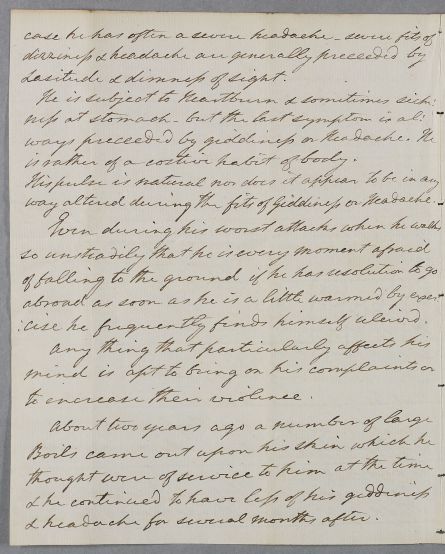 case he has often a severe headache - severe fits of
dizziness & headache are generally preceeded by
Lasitude & dimness of sight.
He is subject to Heartburn & sometimes sick:
ness at stomach - but the last symptom is al:
ways preceeded by giddiness or Headache. He
is rather of a costive habit of body.
His pulse is natural nor does it appear to be in any
way altered during the fits of Giddiness or Headache.
Even during his worst attacks when he walks
so unsteadily that he is every moment afraid
of falling to the ground if he has resolution to go
abroad as soon as he is a little warmed by exer
:cise he frequently finds himself relieved.
Any thing that particularly affects his
mind is apt to bring on his complaints or
to encrease their violence.
About two years ago a number of large
Boils came out upon his skin which he
thought were of service to him at the time
& he continued to have less of his giddiness
& headache for several months after.